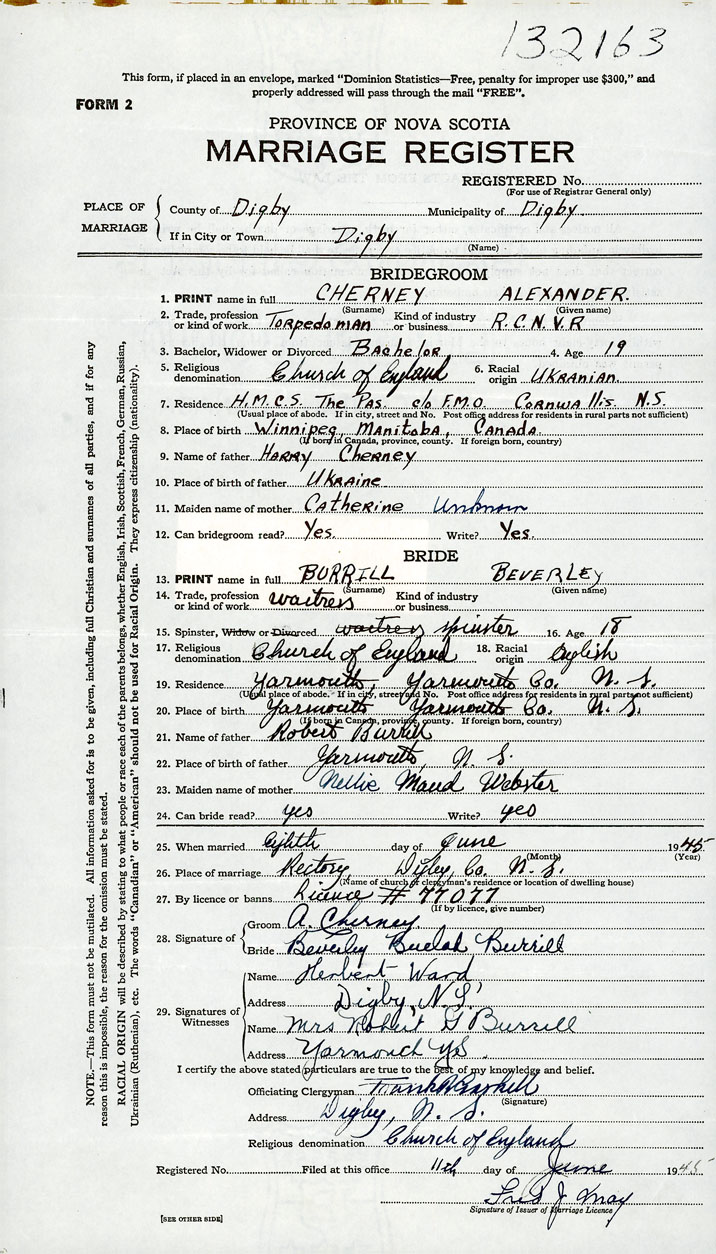 132163
This form, if placed in an envelope, marked "Dominion Statistics—Free, penalty for improper use $300," and
properly addressed will pass through the mail "FREE".
FORM 2
PROVINCE OF NOVA SCOTIA
MARRIAGE REGISTER
REGISTERED No.
(For use of Registrar General only)
PLACE OF MARRIAGE
County of Digby Municipality of Digby
If in City or Town Digby
(Name)
BRIDEGROOM
1. PRINT name in full CHERNEY ALEXANDER.
(Surname) (Given name)
2. Trade, profession or kind of work Torpedoman Kind of industry or business R.C.N.V.R
3. Bachelor, Widower or Divorced Bachelor 4. Age 19
5. Religious denomination Church of England 6. Racial origin UKRANIAN.
7. Residence H.M.C.S. The Pas. c/o F.M.O. Cornwallis. N.S.
(Usual place of abode. If in city, street and No. Post office address for residents in rural parts not sufficient)
8. Place of birth Winnipeg, Manitoba, Canada.
(If born in Canada, province, county. If foreign born, country)
9. Name of father HARRY Cherney
10. Place of birth of father UKRAINE
11. Maiden name of mother CATHERINE Unknown
12. Can bridegroom read? Yes. Write? Yes.
BRIDE
13. PRINT name in full BURRILL BEVERLEY
(Surname) (Given name)
14. Trade, profession or kind of work waitress Kind of industry or business
15. Spinster, Widow or Divorced waitress spinster 16. Age 18
17. Religious denomination Church of England 18. Racial origin English
19. Residence Yarmouth, Yarmouth Co. N. S.
(Usual place of abode. If in city, street and No. Post office address for residents in rural parts not sufficient)
20. Place of birth Yarmouth Yarmouth Co. N. S.
(If born in Canada, province, county. If foreign born, country)
21. Name of father Robert Burrill
22. Place of birth of father Yarmouth, N. S.
23. Maiden name of mother Nellie Maud Webster
24. Can bride read? yes Write? yes
25. When married Eighth day of June 1945
(Month) (Year)
26. Place of marriage Rectory, Digby, Co. N. S.
(Name of church or clergyman's residence or location of dwelling house)
27. By licence or banns Licence # 77077
(If by licence, give number)
28. Signature of
Groom A. Cherney
Bride Beverley Buelah Burrill
29. Signatures of Witnesses
Name Herbert Ward
Address Digby, N.S.
Name Mrs Robert G Burrill
Address Yarmouth
I certify the above stated particulars are true to the best of my knowledge and belief.
Officiating Clergyman Frank
(Signature)
Address Digby, N. S.
Religious denomination Church of England
Registered No. Filed at this office 11th day of June 1945
Fred J May
Signature of Issuer of Marriage Licence
[SEE OTHER SIDE]
NOTE.—This form must not be mutilated. All information asked for is to be given, including full Christian and surnames of all parties, and if for any
reason this is impossible, the reason for the omission must be stated.
RACIAL ORIGIN will be described by stating to what people or race each of the parents belongs, whether English, Irish, Scottish, French, German, Russian,
Ukrainian (Ruthenian), etc. The words "Canadian" or "American" should not be used for Racial Origin. They express citizenship (nationality).